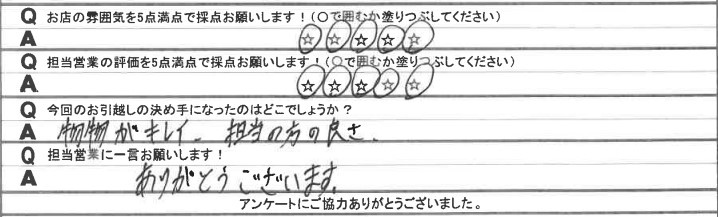 Q お店の雰囲気を5点満点で採点お願いします！(○で囲むか塗りつぶしてください)
A ☆☆☆☆☆
Q 担当営業の評価を5点満点で採点お願いします！(○で囲むか塗りつぶしてください)
A ☆☆☆☆☆
Q 今回のお引越しの決め手になったのはどこでしょうか？
A 物物がキレイ、担当の方の良さ、
Q 担当営業に一言お願いします！
A ありがとうございます。
アンケートにご協力ありがとうございました。